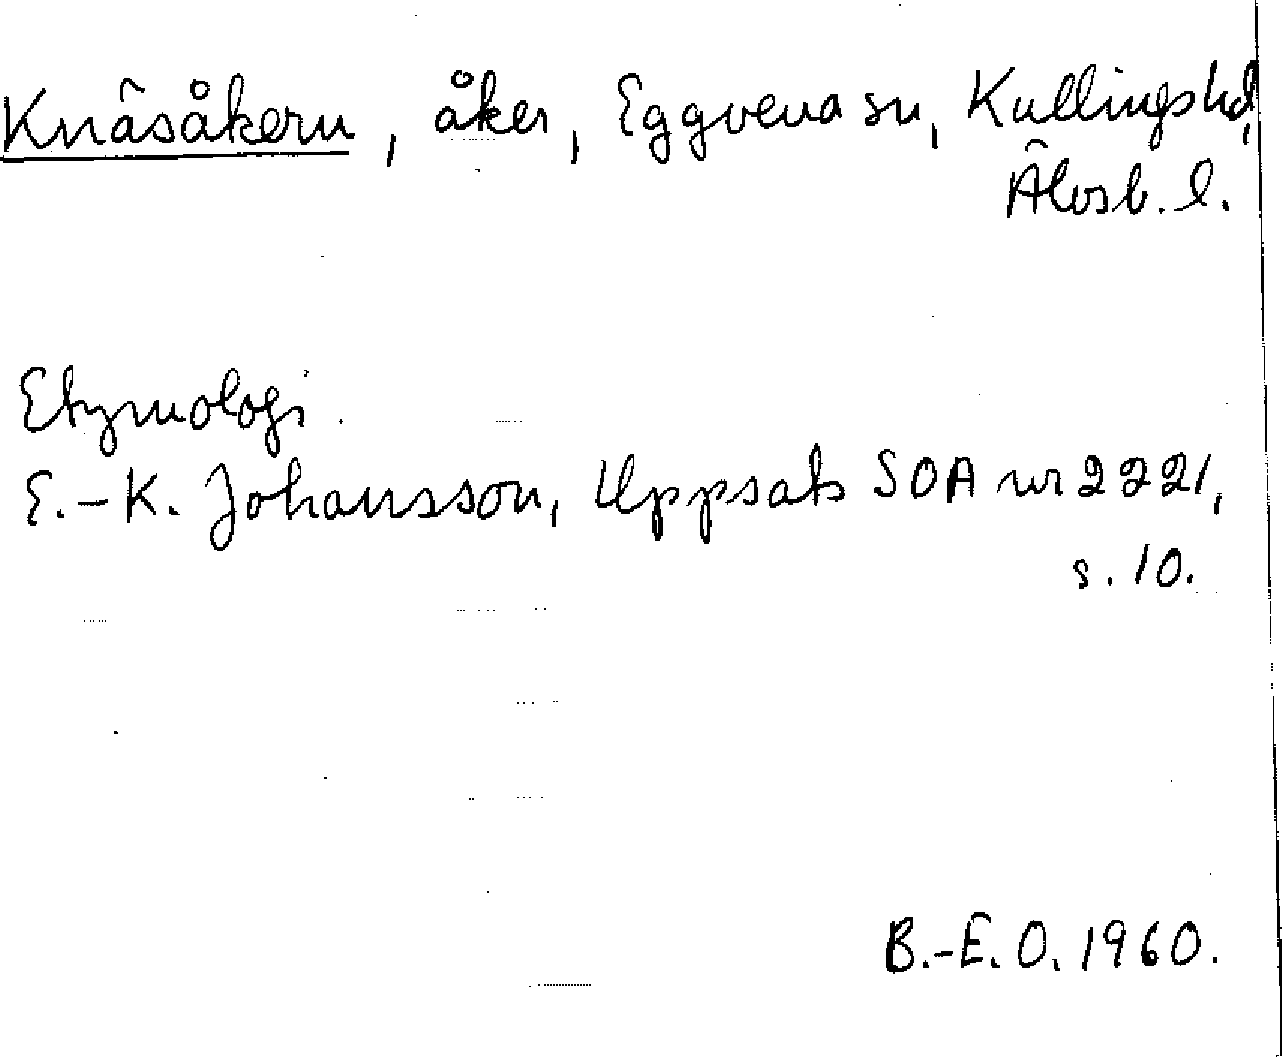 Knäsåkern, åker, Eggvena sn, Kullings hd,
Älvsb. l.
Etymologi.
E.-K. Johansson, Uppsats SOA nr 2221,
s. 10.
B.-E. O. 1960.